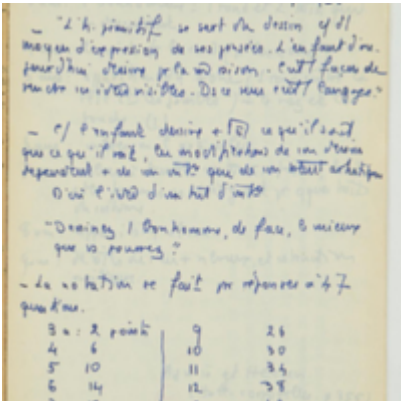 "L'h. primitif se sert du dessin c/ d'1
moyen d'expression de ses pensées. L'enfant d'au-
jourd'hui dessine pr la m̂ raison. C'est 1 façon de
rendre ses idées visibles. Dans ce sens c'est 1 langage."
- C/ l'enfant dessine + ce qu'il sait
que ce qu'il voit, les modifications de son dessin
dépendent + de son int. que de son
D'où l'idée d'un test d'int.
"Dessinez 1 bonhomme, de face, le mieux
que vs pouvez."
- La notation se fait par réponses à 47
questions.
3 a : 2 points 9 26
4 6 10 30
5 10 11 34
6 14 12 38